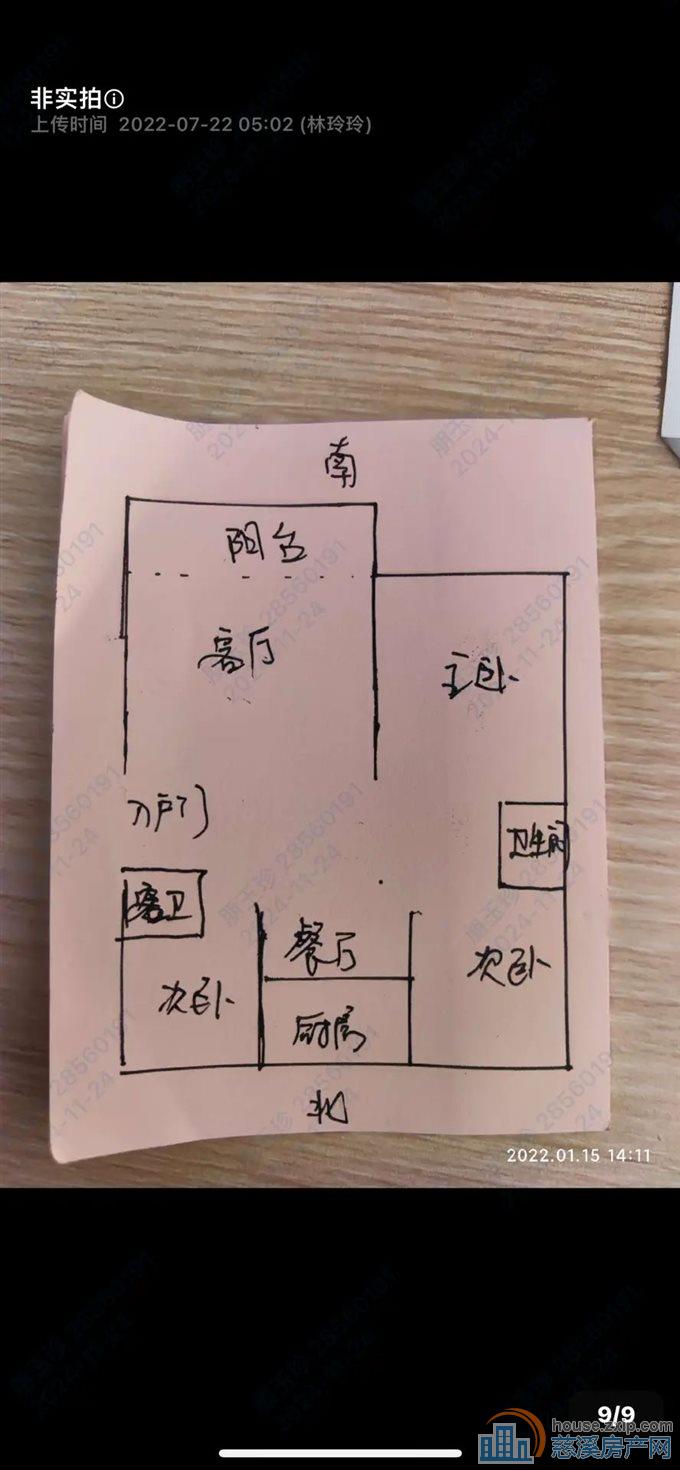 非实拍
上传时间 2022-07-22 05:02 (林玲玲)
南
阳台
客厅
主卧
入户门
卫生间
客卫
餐厅
次卧
次卧
厨房
北
2022.01.15 14:11
9/9
house.zxip.com
慈溪房产网
朋玉珍 28560191
2024-11-24